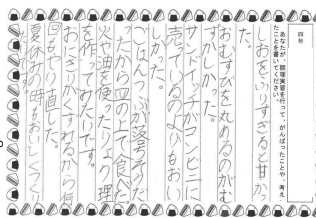 四年
あなたが、調理実習を行って、がんばったことや、考え
たことを書いてください。
しおをいりすぎると甘かっ
た。
おむすびを丸めるのがむ
ずかしかった。
サンドイッチがコンビニに
売っているのよりもおい
しかった。
ごはんつぶが落ちそうだ
ったから皿の上で食べた
火や油を使ったりょう理
を作ってみたいです。
おにぎりがくずれるから何
回もやり直した。
夏休みの時もおいしくつくり